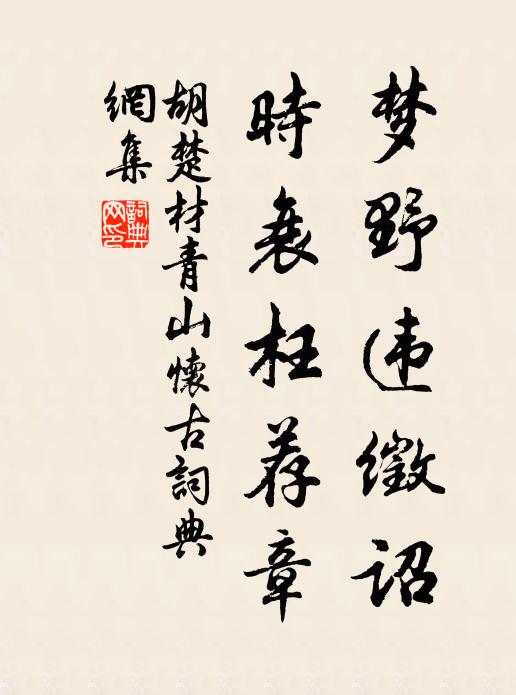 梦野违徵詔
時衰枉荐章
胡楚材青山懷古詞典
網集
詞典網印